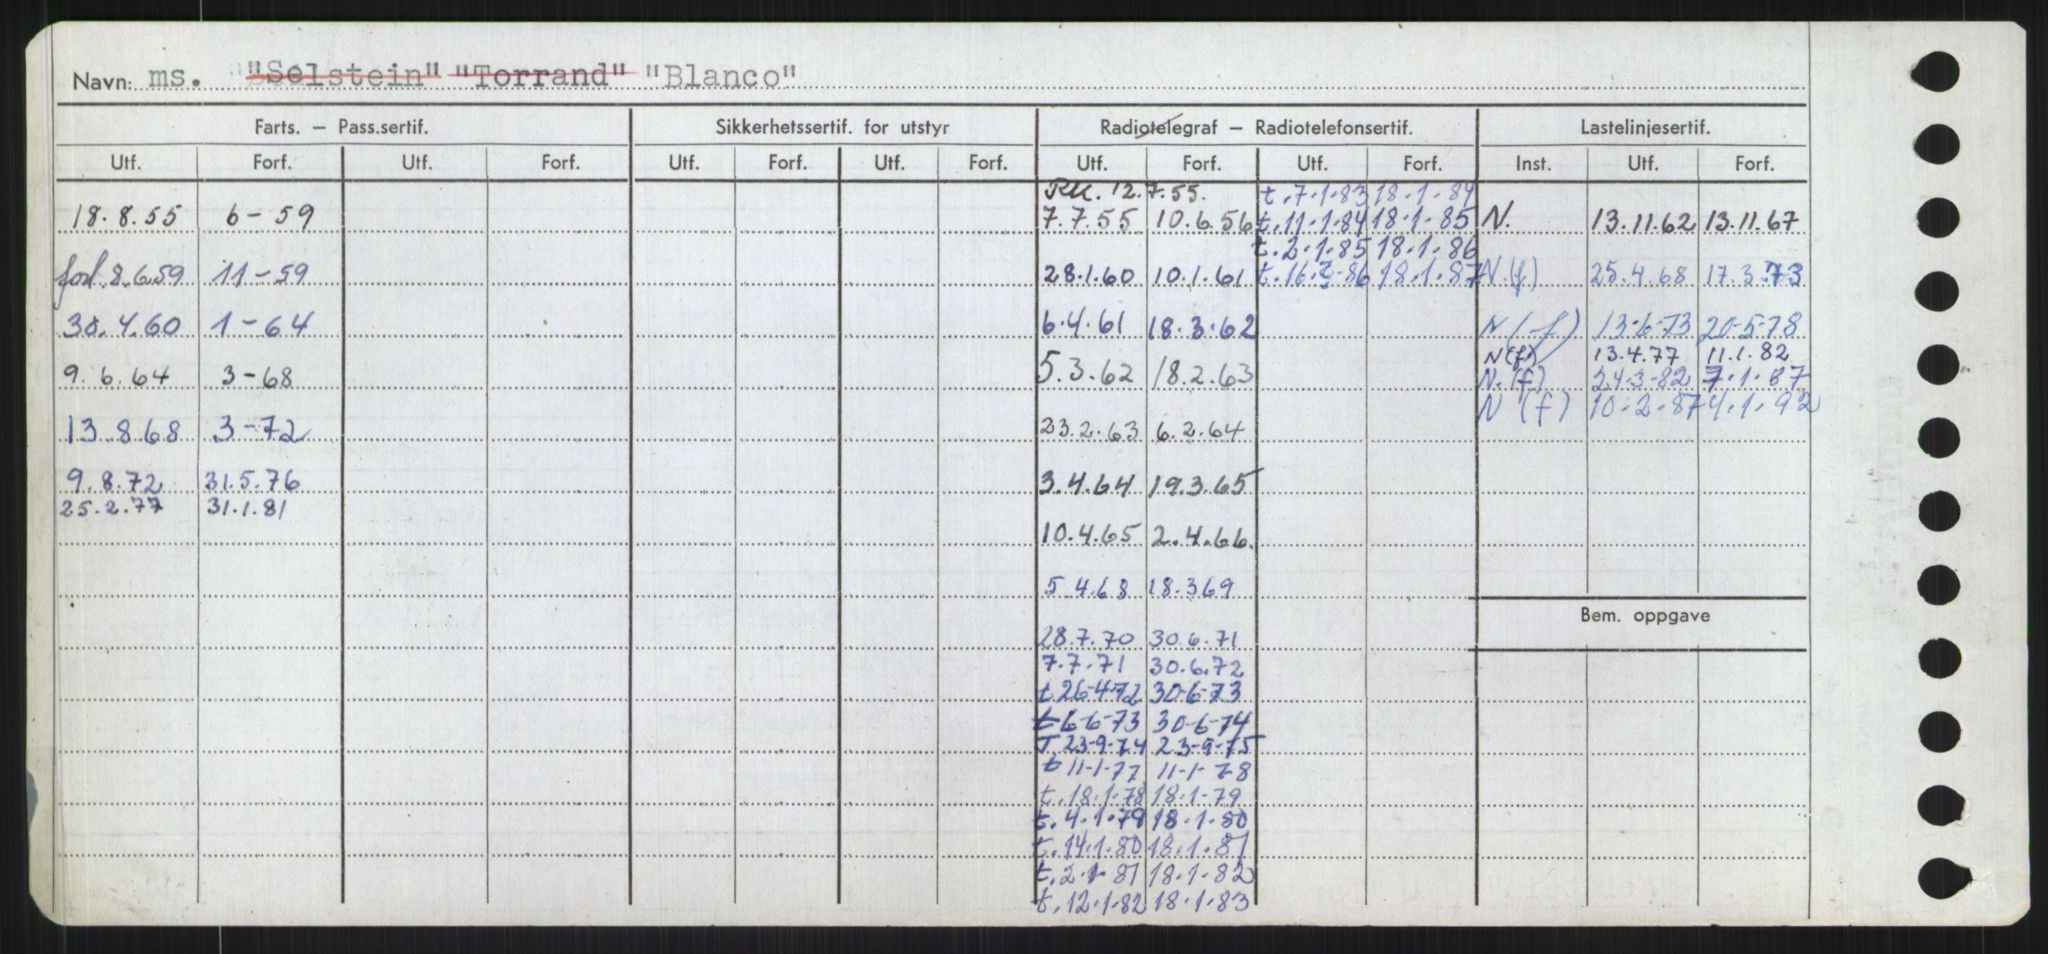 Navn: ms. "Selstein" "Torrand" "Blanco"
Farts. — Pass.sertif. Sikkerhetssertif. for utstyr Radiotelegraf — Radiotelefonsertif. Lastelinjesertif.
Utf. Forf. Utf. Forf. Utf. Forf. Utf. Forf. Utf. Forf. Utf. Forf. Inst. Utf. Forf.
RK. 12.7.55. t.7.1.83 18.1.84
18.8.55 6-59 7.7.55 10.6.56 t.11.1.84 18.1.85 N. 13.11.62 13.11.67
t.2.1.85 18.1.86
forl 8.6.59 11-59 28.1.60 10.1.61 t.16.2.86 18.1.87 N(f) 25.4.68 17.3.73
30.4.60 1-64 6.4.61 18.3.62 N(f) 13-6-73 20-5-78
N(f) 13.4.77 11.1.82
9.6.64 3-68 5.3.62 18.2.63 N.(f) 24.3-82 7.1.87
N (f) 10.2.87 4.1.92
13.8.68 3-72 23.2.63 6.2.64
9.8.72 31.5.76 3.4.64 19.3.65
25.2.77 31.1.81
10.4.65 2.4.66.
5 4.68 18.369
Bem. oppgave
28.7.70 30.6.71
7.7.71 30.6.72
t.26-4-72 30-6-73
t 6-6-73 30-6-74
T.23-9-74 23-9-75
t 11-1-77 11-1-78
t.18.1.78 18.1.79
t.4.1.79 18.1.80
t.14.1.80 18.1.81
t.2.1.81 18.1.82
t.12.1.82 18.1.83